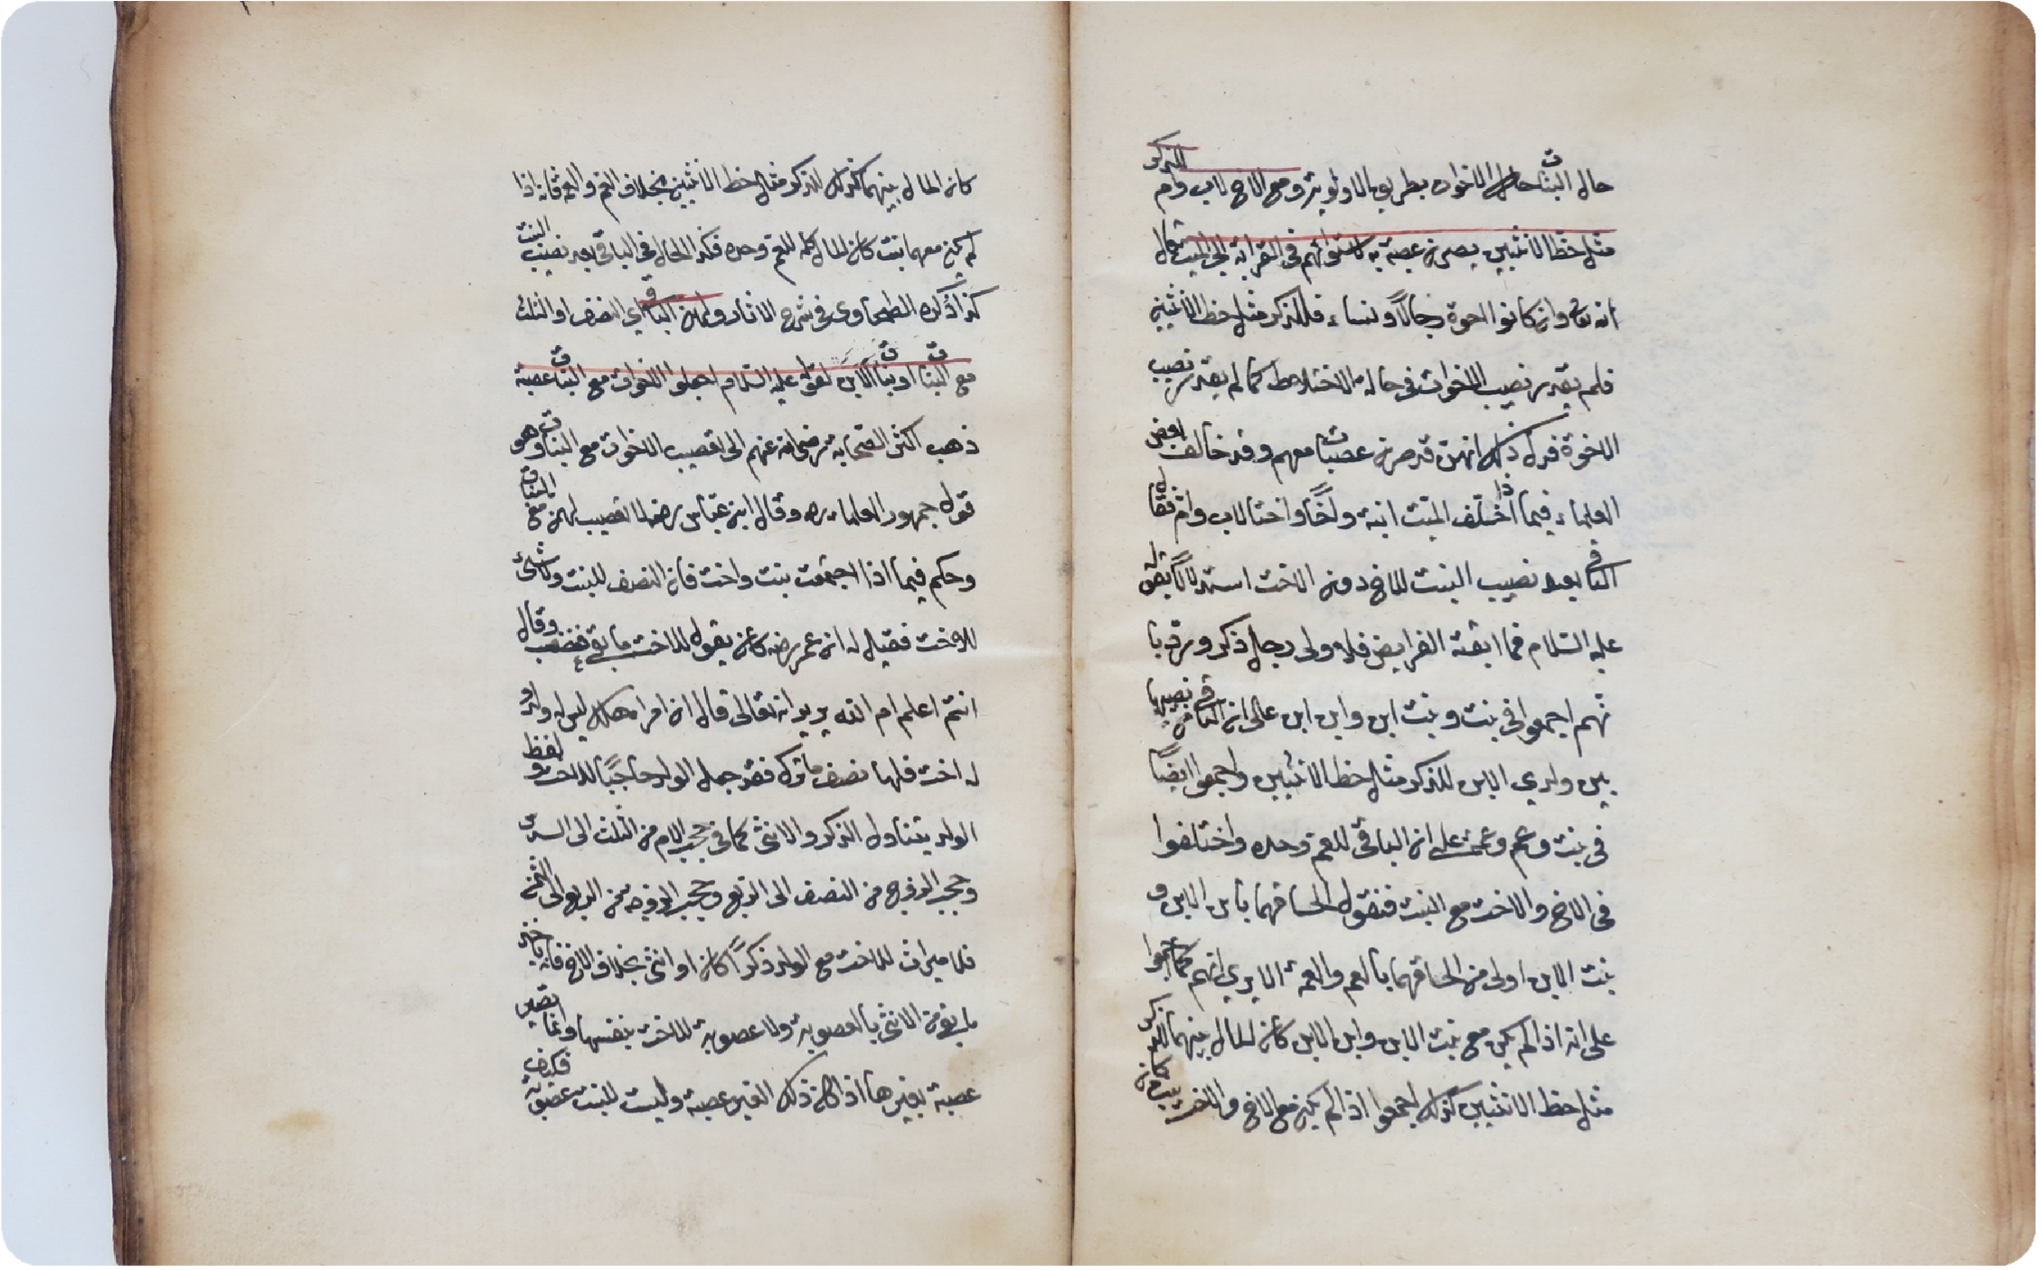 حال البنات حال الاخوات بطريق الاولوية ومع الاخ لاب وام للذكر
مثل حظ الانثيين يصرن عصبة به لاستوائهم في القرابة الى الميت قال
الله تعالى وان كانوا اخوة رجالا ونساء فللذكر مثل حظ الانثيين
فلم يقدر نصيب الاخوات في حالة الاختلاط كما لم يقدر نصيب
الاخوة فدل ذلك انهن قد صرن عصبات معهم وقد خالف بعض
العلماء فيما اذا خلف الميت ابنة واخا واختا لاب وام فقال
الباقي بعد نصيب البنت للاخ دون الاخت استدلالا بقوله
عليه السلام فما ابقته الفرايض فلاولى رجل ذكر ورد با
نهم اجمعوا في بنت وبنت ابن وابن ابن على ان الباقي من نصيبها
بين ولدي الابن للذكر مثل حظ الانثيين واجمعوا ايضا
في بنت وعم وعمة على ان الباقي للعم وحده واختلفوا
في الاخ والاخت مع البنت فنقول الحاقهما بابن الابن و
بنت الابن اولى من الحاقهما بالعم والعمة الا يرى انهم كما اجمعوا
على انه اذا لم يكن مع بنت الابن وابن الابن كان المال بينهما للذكر
مثل حظ الانثيين كذلك اجمعوا اذا لم يكن مع الاخ والاخت غيرهما
كان المال بينهما كذلك للذكر مثل حظ الانثيين بخلاف العم والعمة فانه اذا
لم يكن معهما بنت كان المال كله للعم وحده فكذا الحال في الباقي بعد نصيب البنت
كذا ذكره الطحاوي في شرح الاثار ولهن الباقي اي النصف او الثلث
مع البنات او بنات الابن لقوله عليه السلام اجعلوا الاخوات مع البنات عصبة
ذهب اكثر الصحابة رضي الله عنهم الى تعصيب الاخوات مع البنات وهو
قول جمهور العلماء ره وقال ابن عباس رضه لا تعصيب لهن مع البنات
وحكم فيما اذا اجتمعت بنت واخت فان النصف للبنت ولا شئ
للاخت فقيل له ان عمر رضه كان يقول للاخت ما بقي فغضب وقال
انتم اعلم ام الله يريد انه تعالى قال ان امرا هلك ليس له ولد و
له اخت فلها نصف ما ترك فقد جعل الولد حاجبا للاخت ولفظ
الولد يتناول الذكر والانثى كما في حجب الام من الثلث الى السدس
وحجب الزوج من النصف الى الربع وحجب الزوجة من الربع الى الثمن
فلا ميراث للاخت مع الولد ذكرا كان او انثى بخلاف الاخ فانه ياخذ
ما بقي من الانثى بالعصوبة ولا عصوبة للاخت بنفسها وانما تصير
عصبة بغيرها اذا كان ذلك الغير عصبة وليست للبنت عصوبة فكيف